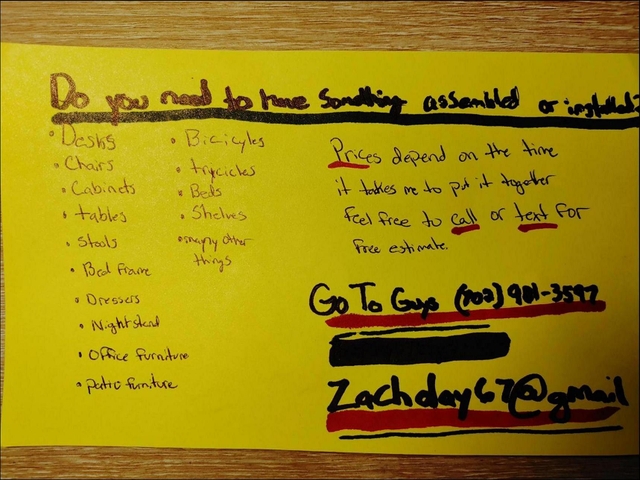 Do you need to have something assembled or installed?
• Desks
• Chairs
• Cabinets
• tables
• Stools
• Bed frame
• Dressers
• Nightstand
• Office furniture
• patio furniture
• Bicicyles
• trycicles
• Beds
• Shelves
• many other
things
Prices depend on the time
it takes me to put it together
feel free to call or text for
free estimate.
Go To Guys (702) 981-3597
Zachday67@gmail